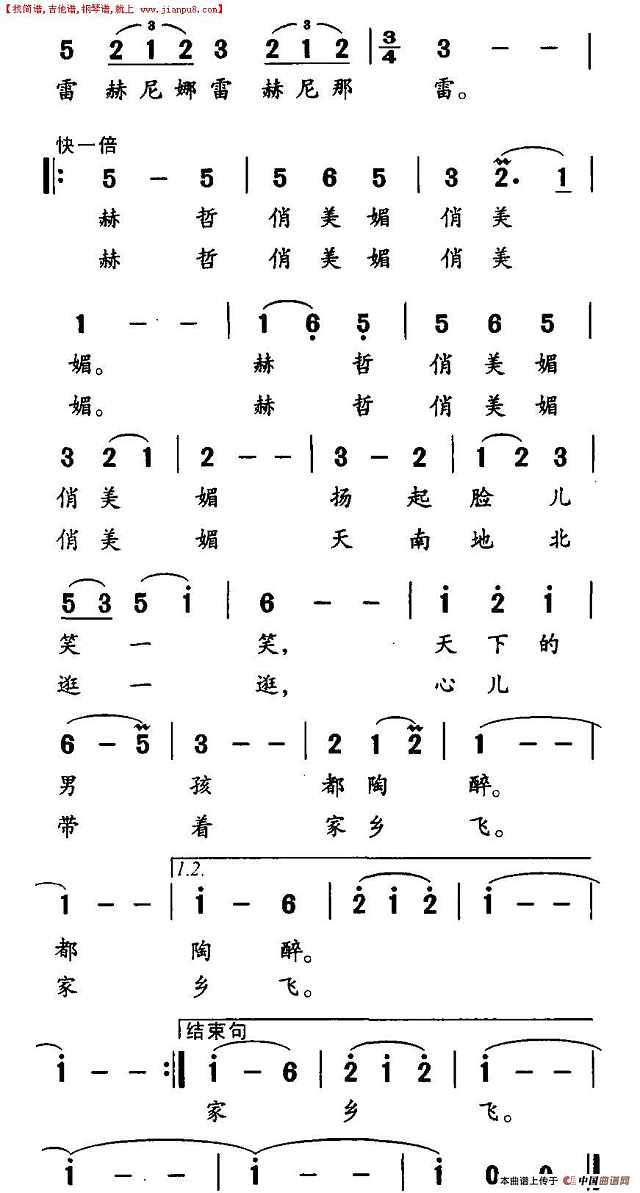 【找简谱,吉他谱,钢琴谱,就上 www.jianpu8.com】
3 3
5 212 3 212 | 3/4 3 － － |
雷赫尼娜雷赫尼那 雷。
快一倍
‖: 5 － 5 | 5 6 5 | 3 2. 1 |
赫 哲 俏美媚 俏美
赫 哲 俏美媚 俏美
1 － － | 1 6 5 | 5 6 5 |
媚。 赫 哲 俏美媚
媚。 赫 哲 俏美媚
3 2 1 | 2 － － | 3 － 2 | 1 2 3 |
俏美 媚 扬 起 脸 儿
俏美 媚 天 南 地 北
5 3 5 i | 6 － － | i 2 i |
笑 一 笑, 天下的
逛 一 逛, 心儿
6 － 5 | 3 － － | 2 1 2 | 1 － － |
男 孩 都陶 醉。
带 着 家乡 飞。
1.2.
1 － － | i － 6 | 2 i 2 | i － － |
都 陶 醉。
家 乡 飞。
结束句
i － － :‖ i － 6 | 2 i 2 | i － － |
家 乡 飞。
i － － | i － － | i 0 0 ‖
本曲谱上传于 中国曲谱网